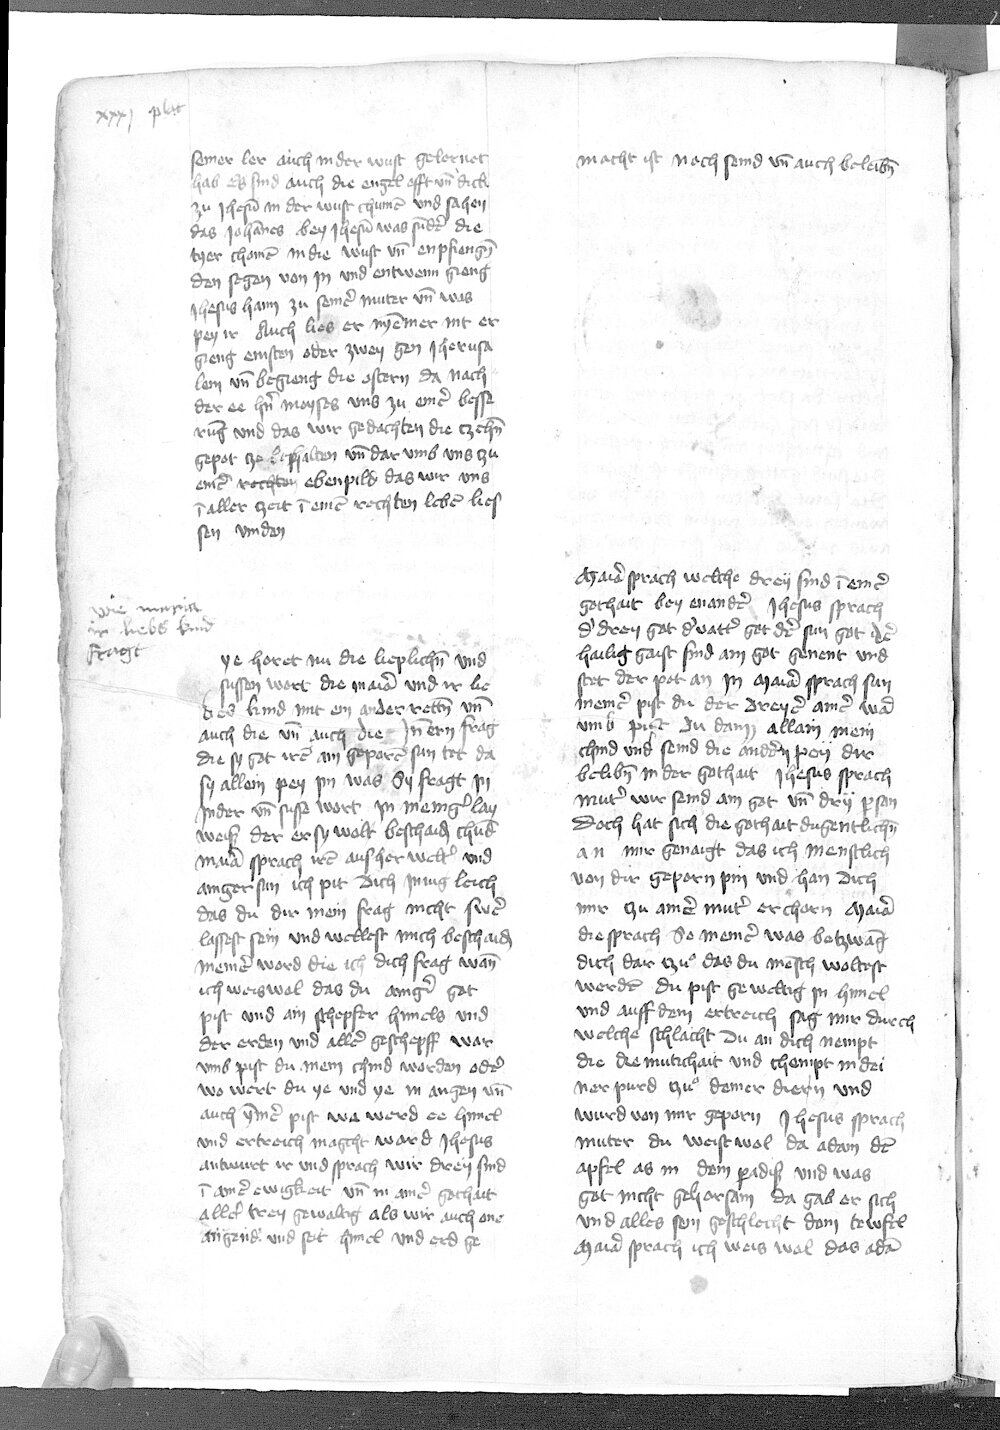 xxxj plat
seiner ler auch in der wust gelernet
hab es sind auch die engel offt vn̄ dick
zu Jhesu in der wust chumē und sahen
das Johānes bey Jhesu was sūd̄ die
tyer chomē in die wust vn̄ enpfiengn̄
den segen von in und entwenn gieng
Jhesus haim zu seinē muter vn̄ was
pey ir Auch lies er nyēmer nit er
gieng einsten oder zwey gen Jherusa
lem vn̄ begieng die ostern da nach
der ee hn̄ moyses vns zu einē besse
rūg und das wir gedachten die czehn̄
gepot ze behalten vn̄ dar vmb vns czu
einē rechten ebenpild das wir vns
ī aller zeit ī einē rechten lebē lies
sen vinden
wie maria
ir liebs kind
fragt
ye horet nu die lieplichn̄ und
sussen wort die maiā und ir lie
bes kind mit ein ander rettn̄ vn̄
auch die vn̄ auch die Jn̄ern frag
die sy got irē ain geporē sun tet da
sy allein pey im was Sy fragt in
Jnder vn̄ suse wort in meingᵉlay
weiß der er sy wolt beschaidn̄ chūd
maiā sprach irē ausherweltᵉ und
ainger sun ich pit dich Jnnig leich
das du dir mein frag nicht swēr
lassest sein und wellest mich beschaidn̄
meinē word die ich dich frag wan̄
ich weis wol das du ainigᵉ got
pist und ain schepfer himels und
der erden und allē geschepff war
vmb pist du mein chind worden odē
wo wert du ye und ye in angen vn̄
auch ymē pist wo werd ee himel
und ertreich magcht ward Jhesus
antwurt ir und sprach wir dreÿ sind
ī ainē ewigkeit vn̄ in ainē gothait
allē trey gewaltig als wir auch one
angend und seit himel und erd ge
macht ist noch seind vn̄ auch beleibn̄
Maiā sprach welche dreÿ sind ī einē
gothait bey enandē Jhesus sprach
dᵉ dreÿ got dᵉ vatᵉ got dē sun got dē
hailig gaist sind ain got genent und
stet der pot an in Maiā sprach sun
meinē pist du der dreyē ainē wā
vmb pist du dann allain mein
chind und seind die andēn peÿ dir
belibn̄ in der gothait Jhesus sprach
mutᵉ wir seind ain got vn̄ drÿ pᵉson
Doch hat sich die gothait dugentlichn̄
an mir genaigt das ich menslich
von dir geporn pin und han dich
mir zu ainē mutᵉ erchorn Maiā
die sprach So meinē was betzwāg
dich dar tzuͦ das du mēsch woltest
werdē du pist geweltig in himel
und auff dem ertreich sag mir durch
welche schlacht du an dich nempt
die diemutichait und chempt in dei
ner purd tzuͦ deiner diern und
wurd von mir geporn Jhesus sprach
muter du weist wol da adam dē
apfel as in dem pᵉadiß und was
got nicht gehorsam da gab er sich
und alles sein geschlecht dem tewfel
Maiā sprach ich weis wol das adā